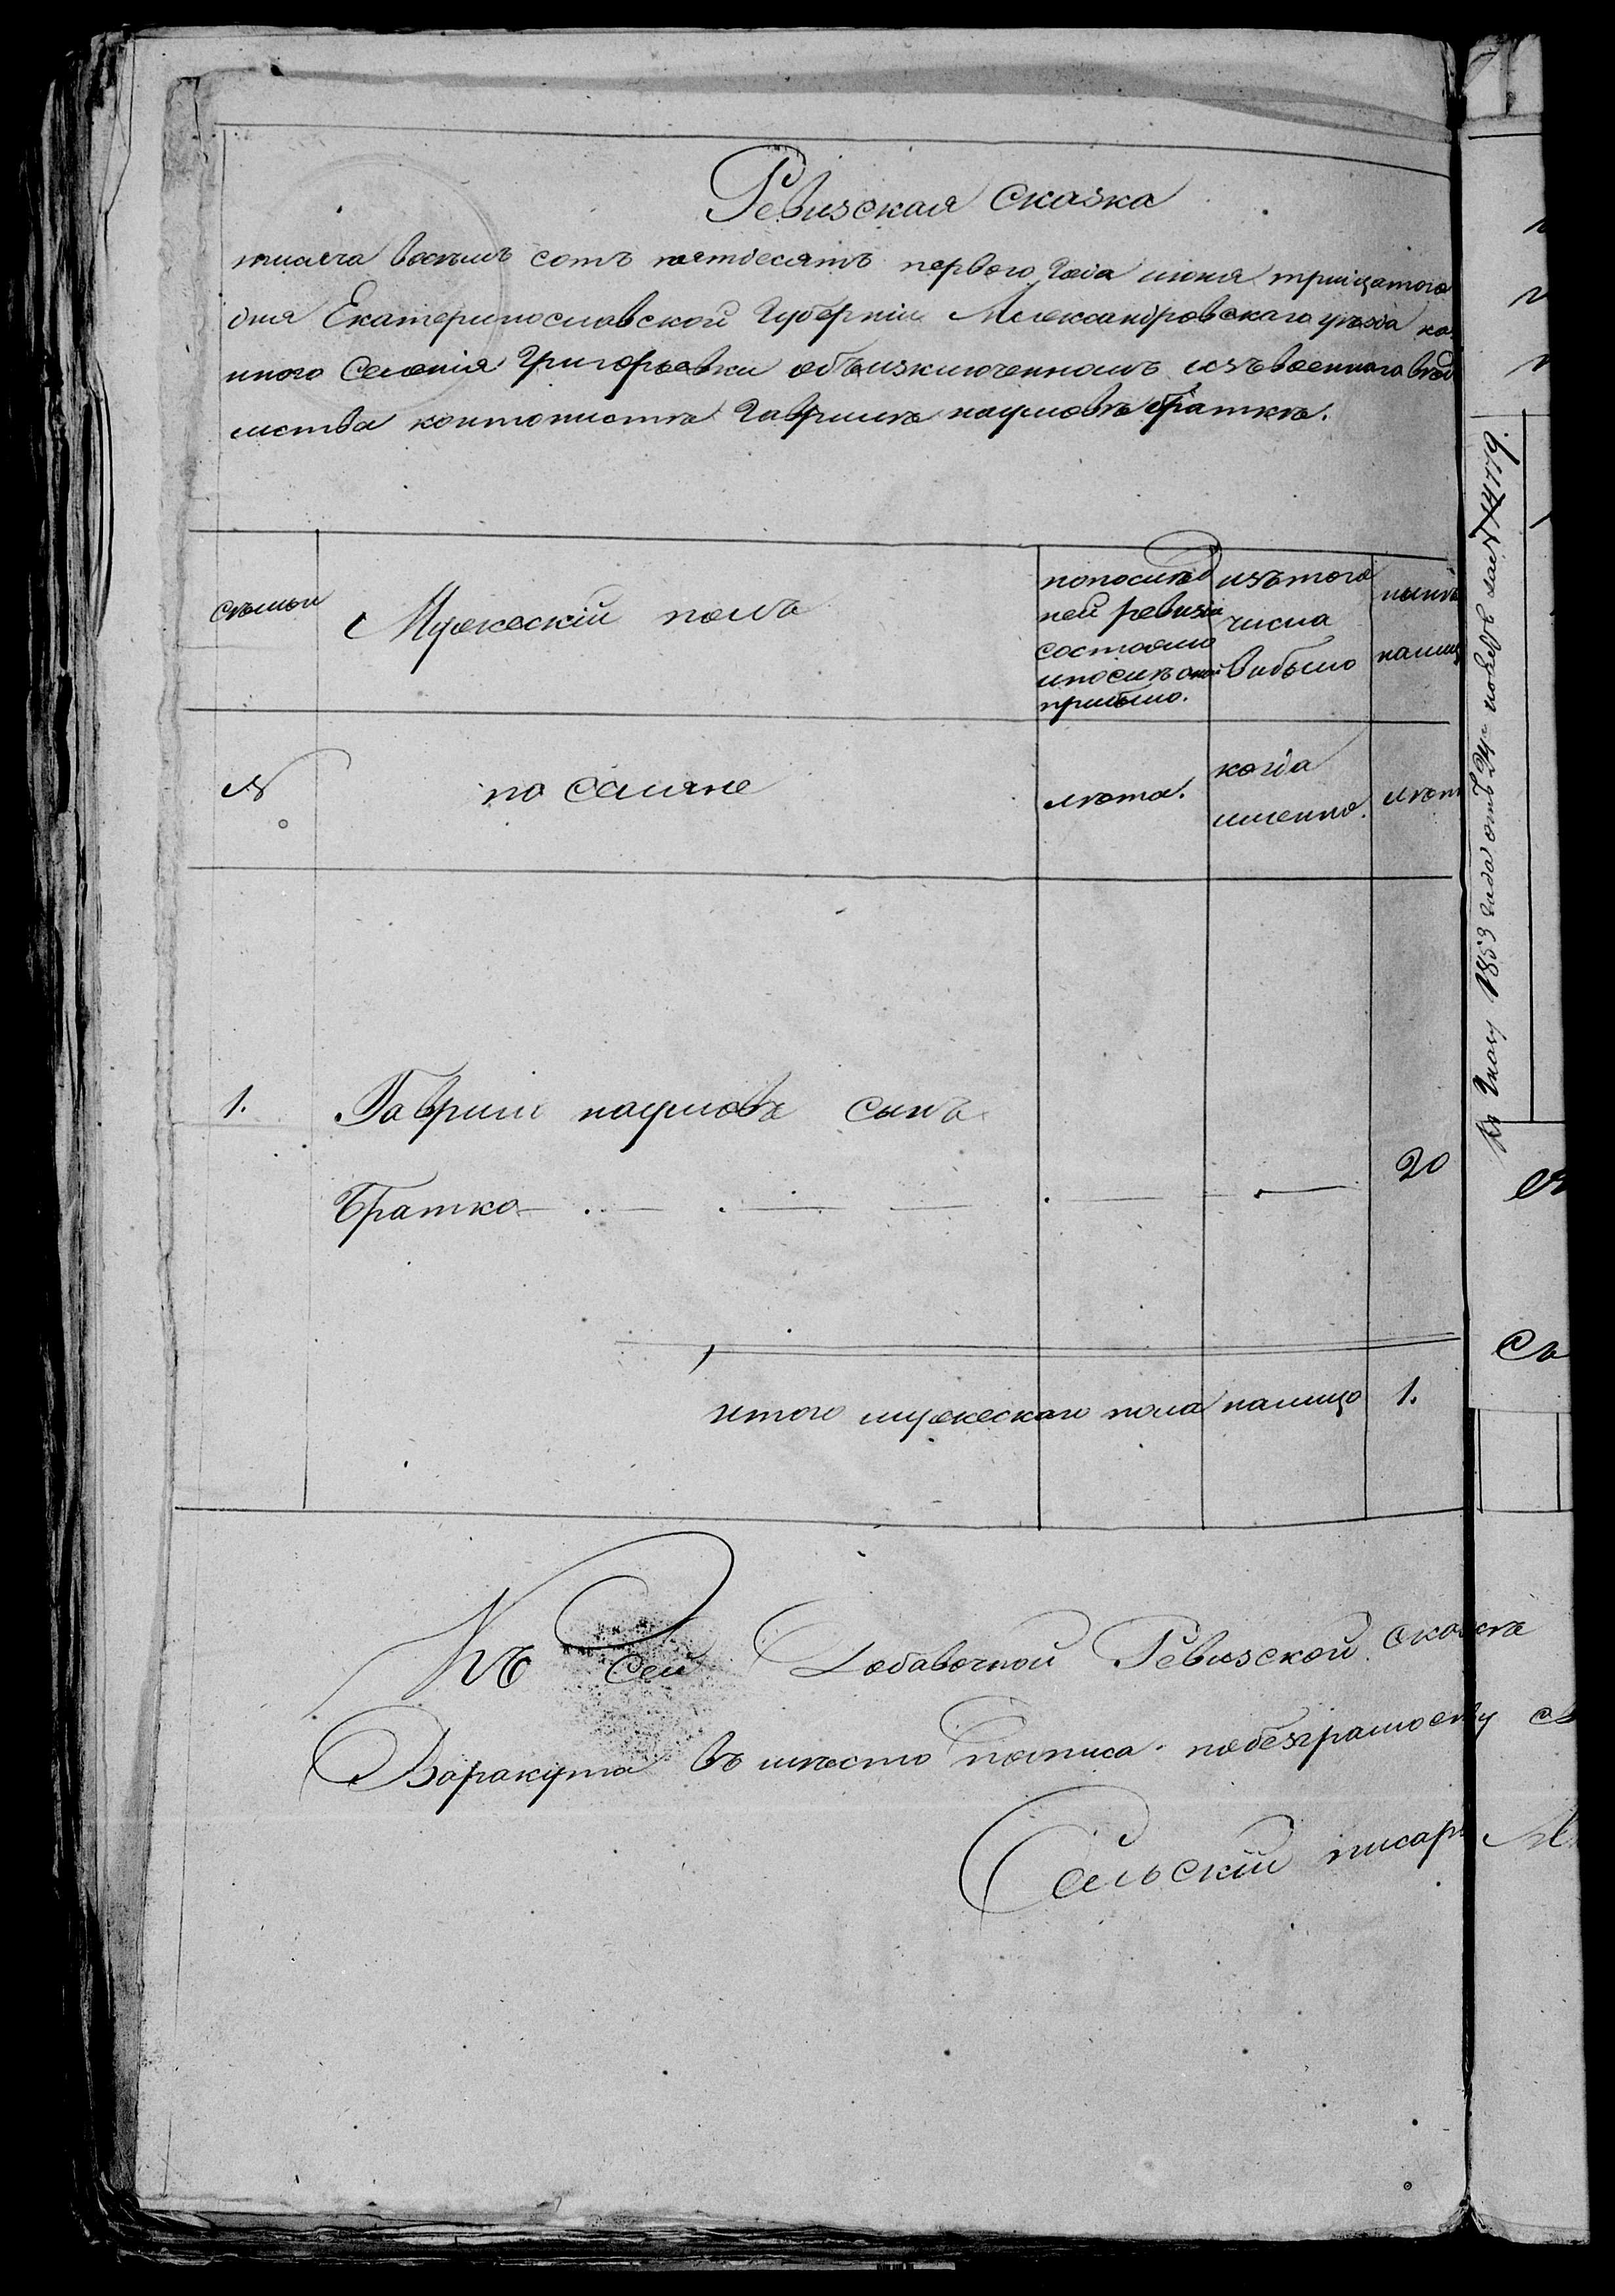 Ревизская сказка
тысяча восемь сотъ пятдесятъ перваго года июня трицатого
дня Екатеринославской Губерніи Александровскаго уезда ка
нного Селенія Григорьевки объизключенномъ изъ военнаго вѣдо
мства контонистѣ Гаврилѣ наумовѣ Браткѣ.
семьи
Мужескій полъ
попослѣд
ней ревизіи
состояло
ипослѣ оной
прибыло.
изътого
числа
выбыло
нынѣ
налиц
№
поселяне
лѣта.
когда
именно.
лѣт
1. Гаврило наумовъ сынъ
Братко
20
итого мужескаго пола налицо 1.
Къ сей Добавочной Ревизской сказкѣ
Варакута въ мѣсто подписа побезграмоству
Сельскій писарь
По Указу 1853 года отъ 24 ноября за № 14779.